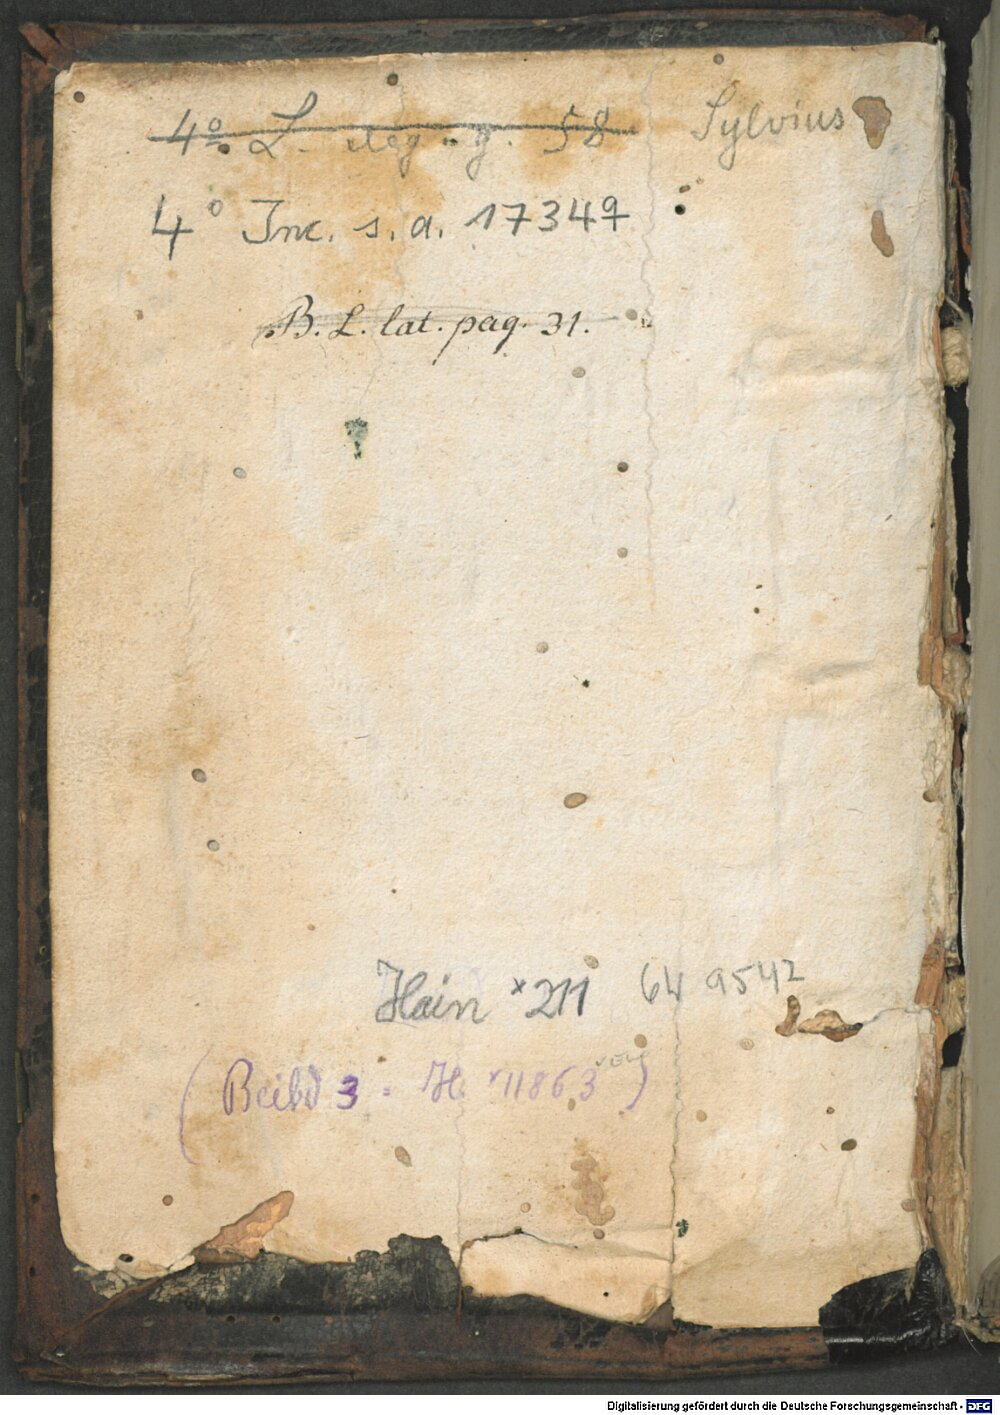 4º L. eleg. g. 58 Sylvius
4º Inc. s. a. 1734q
B. L. lat. pag. 31.
Hain *211 64 9542
(Beibd 3 = H. *11863)
Digitalisierung gefördert durch die Deutsche Forschungsgemeinschaft - DFG